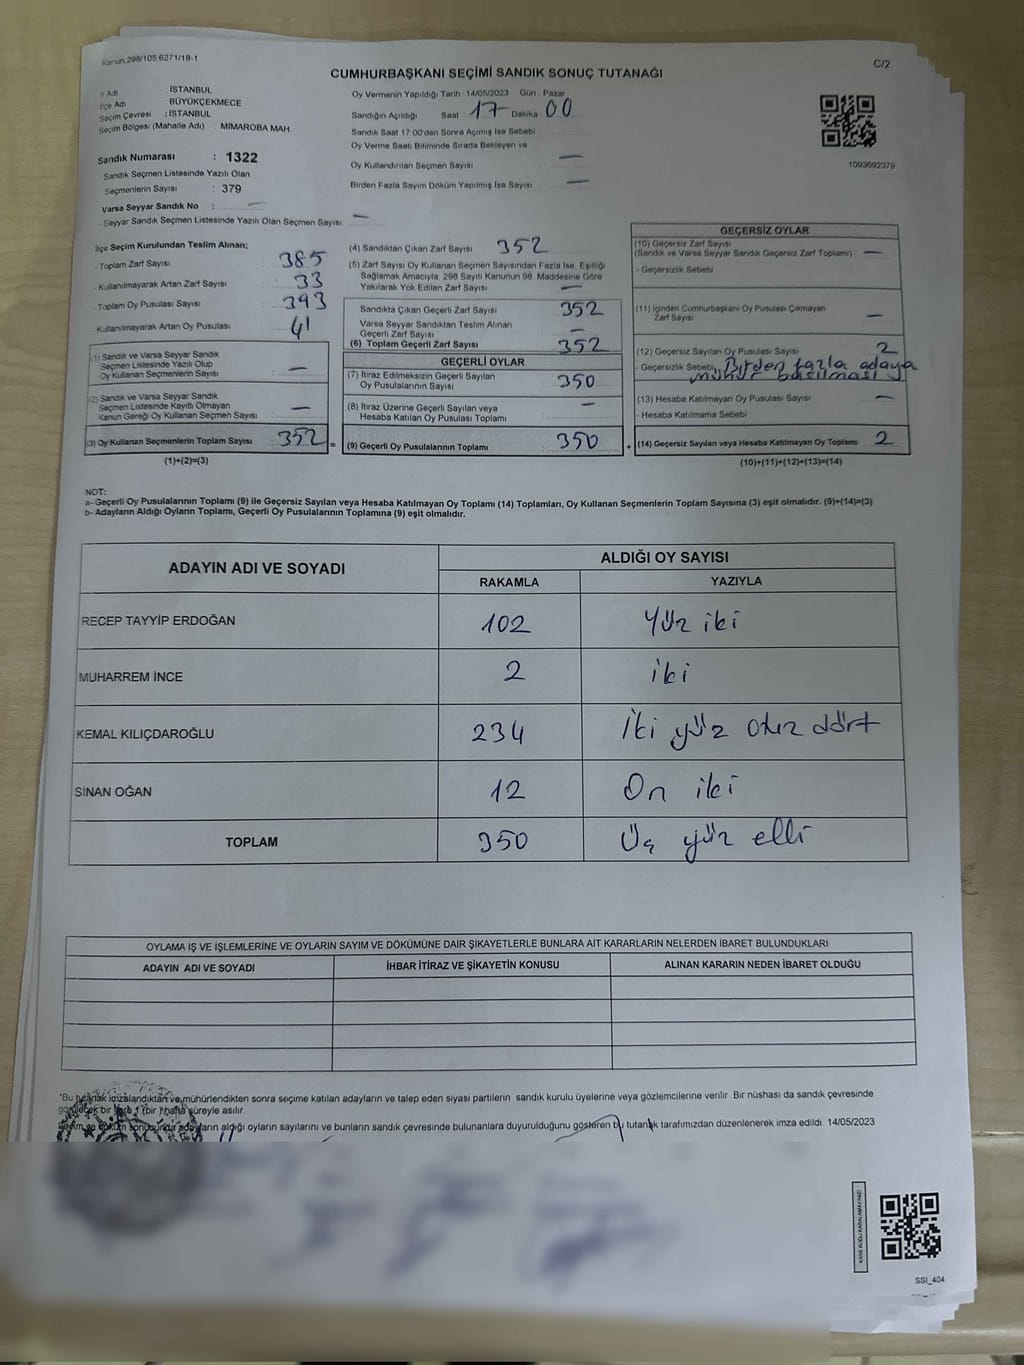 Kanun.298/105,6271/18-1
C/2
CUMHURBAŞKANI SEÇİMİ SANDIK SONUÇ TUTANAĞI
İl Adı İSTANBUL
İlçe Adı : BÜYÜKÇEKMECE
Seçim Çevresi : İSTANBUL
Seçim Bölgesi (Mahalle Adı) : MİMAROBA MAH.
Sandık Numarası : 1322
Sandık Seçmen Listesinde Yazılı Olan
Seçmenlerin Sayısı : 379
Varsa Seyyar Sandık No : —
- Seyyar Sandık Seçmen Listesinde Yazılı Olan Seçmen Sayısı: —
Oy Vermenin Yapıldığı Tarih : 14/05/2023 Gün : Pazar
Sandığın Açıldığı Saat 17 Dakika 00
Sandık Saat 17:00'den Sonra Açmış İse Sebebi
Oy Verme Saati Bitiminde Sırada Bekleyen ve
Oy Kullandırılan Seçmen Sayısı —
Birden Fazla Sayım Döküm Yapılmış İse Sayısı —
1093692379
İlçe Seçim Kurulundan Teslim Alınan;
- Toplam Zarf Sayısı : 385
- Kullanılmayarak Artan Zarf Sayısı : 33
- Toplam Oy Pusulası Sayısı : 393
- Kullanılmayarak Artan Oy Pusulası : 41
(1) Sandık ve Varsa Seyyar Sandık
Seçmen Listesinde Yazılı Olup
Oy Kullanan Seçmenlerin Sayısı : —
(2) Sandık ve Varsa Seyyar Sandık
Seçmen Listesinde Kayıtlı Olmayan
Kanun Gereği Oy Kullanan Seçmen Sayısı : —
(3) Oy Kullanan Seçmenlerin Toplam Sayısı : 352 =
(1)+(2)=(3)
(4) Sandıktan Çıkan Zarf Sayısı 352
(5) Zarf Sayısı Oy Kullanan Seçmen Sayısından Fazla İse, Eşitliği
Sağlamak Amacıyla, 298 Sayılı Kanunun 98. Maddesine Göre
Yakılarak Yok Edilen Zarf Sayısı : —
Sandıkta Çıkan Geçerli Zarf Sayısı : 352
Varsa Seyyar Sandıktan Teslim Alınan
Geçerli Zarf Sayısı : —
(6) Toplam Geçerli Zarf Sayısı : 352
GEÇERLİ OYLAR
(7) İtiraz Edilmeksizin Geçerli Sayılan
Oy Pusulalarının Sayısı : 350
(8) İtiraz Üzerine Geçerli Sayılan veya
Hesaba Katılan Oy Pusulası Toplamı : —
(9) Geçerli Oy Pusulalarının Toplamı : 350 +
GEÇERSİZ OYLAR
(10) Geçersiz Zarf Sayısı
(Sandık ve Varsa Seyyar Sandık Geçersiz Zarf Toplamı) : —
- Geçersizlik Sebebi :
(11) İçinden Cumhurbaşkanı Oy Pusulası Çıkmayan
Zarf Sayısı : —
(12) Geçersiz Sayılan Oy Pusulası Sayısı : 2
- Geçersizlik Sebebi : Birden fazla adaya
mühür basılması
(13) Hesaba Katılmayan Oy Pusulası Sayısı : —
- Hesaba Katılmama Sebebi :
(14) Geçersiz Sayılan veya Hesaba Katılmayan Oy Toplamı : 2
(10)+(11)+(12)+(13)=(14)
NOT:
a- Geçerli Oy Pusulalarının Toplamı (9) ile Geçersiz Sayılan veya Hesaba Katılmayan Oy Toplamı (14) Toplamları, Oy Kullanan Seçmenlerin Toplam Sayısına (3) eşit olmalıdır. (9)+(14)=(3)
b- Adayların Aldığı Oyların Toplamı, Geçerli Oy Pusulalarının Toplamına (9) eşit olmalıdır.
ADAYIN ADI VE SOYADI
ALDIĞI OY SAYISI
RAKAMLA YAZIYLA
RECEP TAYYİP ERDOĞAN 102 Yüz iki
MUHARREM İNCE 2 iki
KEMAL KILIÇDAROĞLU 234 İki yüz otuz dört
SİNAN OĞAN 12 On iki
TOPLAM 350 Üç yüz elli
OYLAMA İŞ VE İŞLEMLERİNE VE OYLARIN SAYIM VE DÖKÜMÜNE DAİR ŞİKAYETLERLE BUNLARA AİT KARARLARIN NELERDEN İBARET BULUNDUKLARI
ADAYIN ADI VE SOYADI İHBAR İTİRAZ VE ŞİKAYETİN KONUSU ALINAN KARARIN NEDEN İBARET OLDUĞU
*Bu tutanak imzalandıktan ve mühürlendikten sonra seçime katılan adayların ve talep eden siyasi partilerin sandık kurulu üyelerine veya gözlemcilerine verilir. Bir nüshası da sandık çevresinde
görülecek bir yere 1 (bir) hafta süreyle asılır.
Sayım ve döküm sonucunda adayların aldığı oyların sayılarını ve bunların sandık çevresinde bulunanlara duyurulduğunu gösteren bu tutanak tarafımızdan düzenlenerek imza edildi. 14/05/2023
KARE KODU KARALAMAYINIZ!
SSI_404